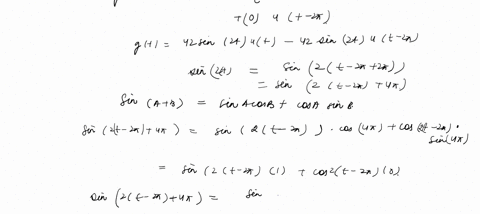 +(0) u (t-2π)
g(t) = 42 sin (2t) u(t) - 42 sin (2t) u (t-2π)
sin (2t) = sin (2 (t-2π+2π))
= sin (2 (t-2π) + 4π)
Sin (A+B) = sin A cos B + cos A sin B
sin (2(t-2π)+4π) = sin (2(t-2π)) . cos (4π) + cos (2(t-2π) . sin(4π)
= sin (2(t-2π) (1) + cos 2(t-2π) (0)
sin (2(t-2π)+4π) = sin